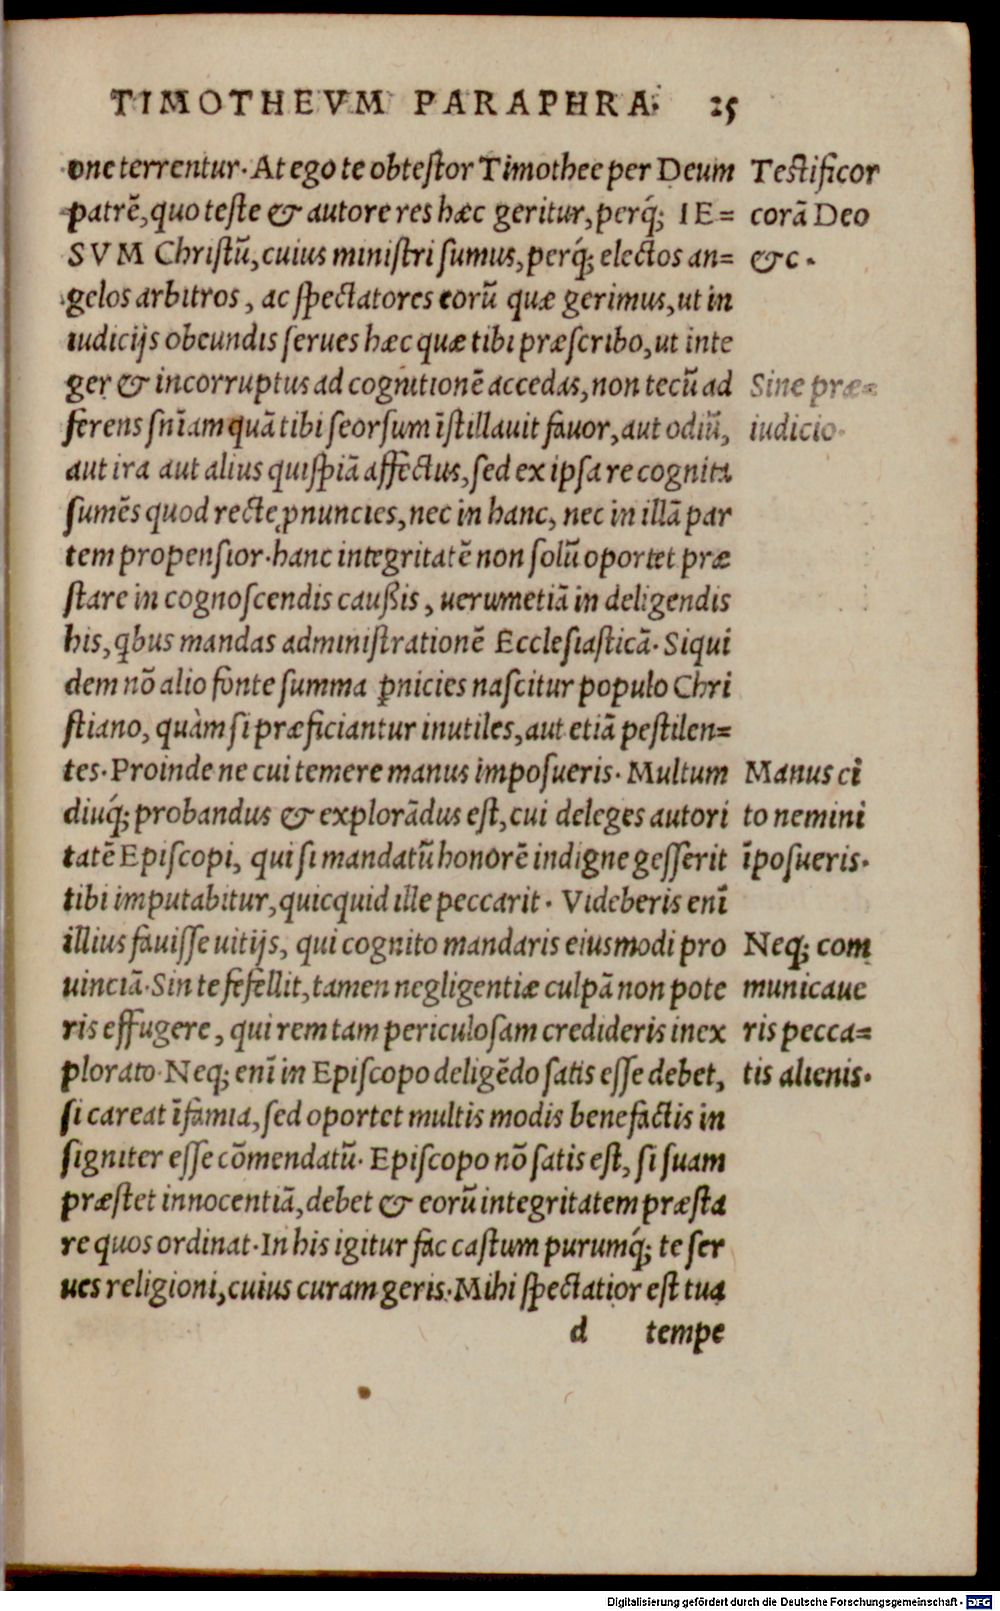 TIMOTHEVM PARAPHRA. 25
one terrentur. At ego te obtestor Timothee per Deum
patrē, quo teste & autore res hæc geritur, perq́; IE=
SVM Christū, cuius ministri sumus, perq́; electos an=
gelos arbitros, ac spectatores eorū quæ gerimus, ut in
iudicijs obeundis serues hæc quæ tibi præscribo, ut inte
ger & incorruptus ad cognitionē accedas, non tecū ad
ferens sn̄iam quā tibi seorsum īstillauit fauor, aut odiū,
aut ira aut alius quispiā affectus, sed ex ipsa re cognita
sumēs quod recte ꝓnuncies, nec in hanc, nec in illā par
tem propensior. hanc integritatē non solū oportet præ
stare in cognoscendis caußis, uerumetiā in deligendis
his, qbus mandas administrationē Ecclesiasticā. Siqui
dem nō alio fonte summa ꝑnicies nascitur populo Chri
stiano, quàm si præficiantur inutiles, aut etiā pestilen=
tes. Proinde ne cui temere manus imposueris. Multum
diuq́; probandus & explorādus est, cui deleges autori
tatē Episcopi, qui si mandatū honorē indigne gesserit
tibi imputabitur, quicquid ille peccarit. Videberis enī
illius fauisse uitijs, qui cognito mandaris eiusmodi pro
uinciā. Sin te fefellit, tamen negligentiæ culpā non pote
ris effugere, qui rem tam periculosam credideris inex
plorato. Neq; enī in Episcopo deligēdo satis esse debet,
si careat īfamia, sed oportet multis modis benefactis in
signiter esse cōmendatū. Episcopo nō satis est, si suam
præstet innocentiā, debet & eorū integritatem præsta
re quos ordinat. In his igitur fac castum purumq́; te ser
ues religioni, cuius curam geris. Mihi spectatior est tua
d tempe
Testificor
corā Deo
&c.
Sine præ=
iudicio.
Manus ci
to nemini
īposueris.
Neq; com
municaue
ris pecca=
tis alienis.
Digitalisierung gefördert durch die Deutsche Forschungsgemeinschaft - DFG